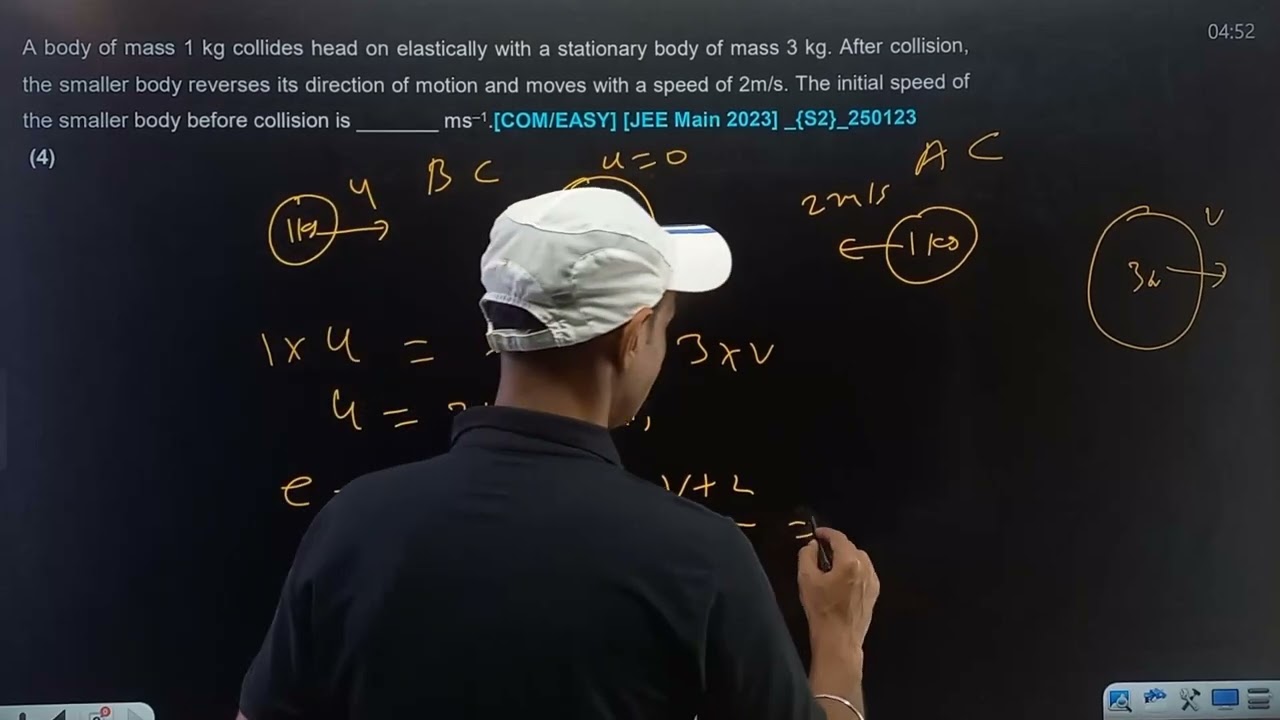 04:52
A body of mass 1 kg collides head on elastically with a stationary body of mass 3 kg. After collision,
the smaller body reverses its direction of motion and moves with a speed of 2m/s. The initial speed of
the smaller body before collision is _______ ms⁻¹.[COM/EASY] [JEE Main 2023] _{S2}_250123
(4)
B C
u=0
A C
1kg
u
2m/s
1kg
3
v
1 × u =
3 × v
u =
e
v + 2
=